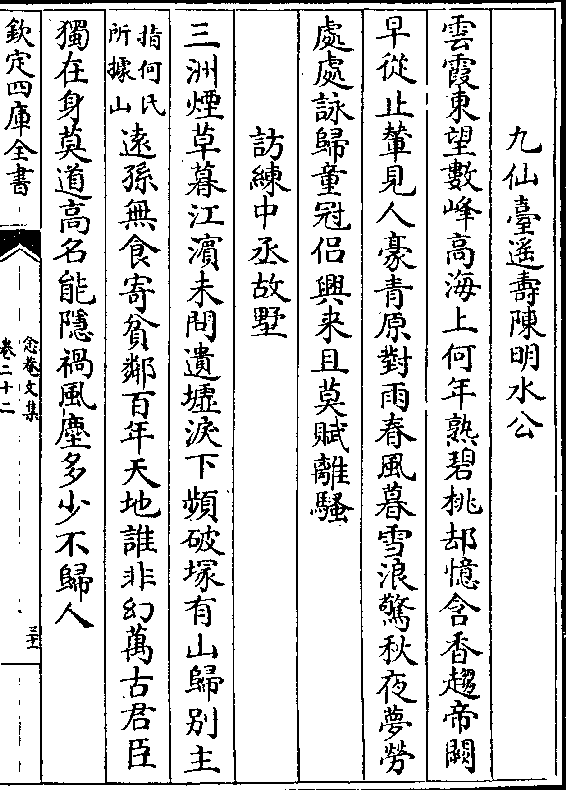 九仙臺遥壽陳明水公
雲霞東望數峰高海上何年熟碧桃却憶含香趨帝闕
早從止輦見人豪青原對雨春風暮雪浪驚秋夜夢勞
處處詠歸童冠侣興来且莫賦離騷
訪練中丞故墅
三洲煙草暮江濵未問遺墟淚下頻破塚有山歸别主
指何氏所據山逺孫無食寄貧鄰百年天地誰非幻萬古君臣
獨在身莫道高名能隱禍風塵多少不歸人
欽定四庫全書
念菴文集
卷二十二
三十一